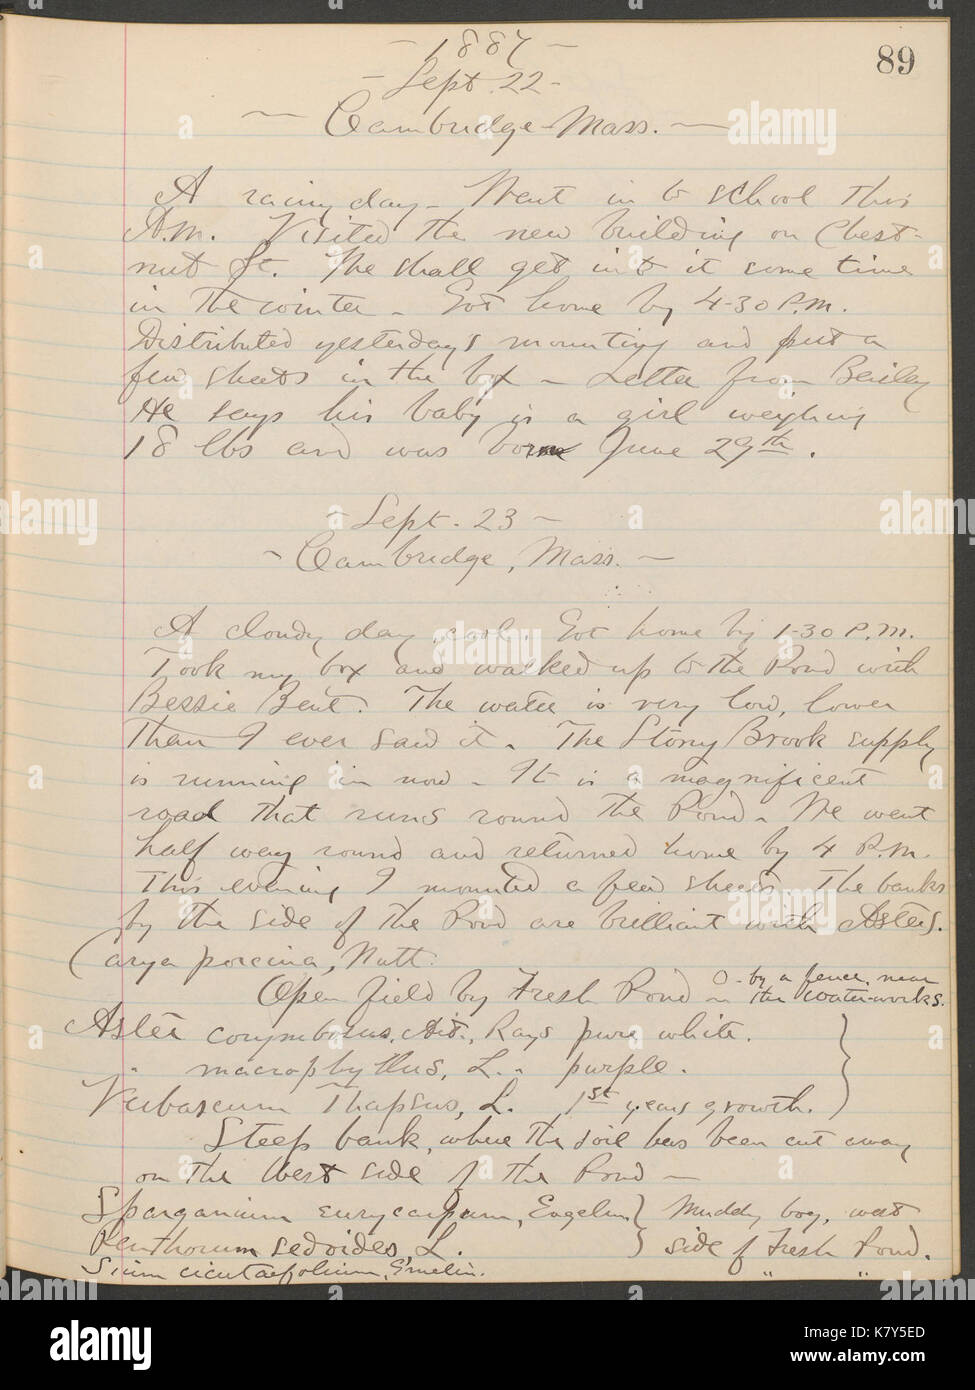 89
- 1887 -
- Sept. 22 -
Cambridge Mass. -
A rainy day - Went in to school this
A.M. Visited the new building on Chest-
nut St. We shall get into it some time
in the winter - Got home by 4-30 P.M.
Distributed yesterday's mounting and put a
few sheets in the box - Letter from Bailey
He says his baby is a girl weighing
18 lbs and was born June 29th.
- Sept. 23 -
- Cambridge, Mass. -
A cloudy day, cool. Got home by 1-30 P.M.
Took my box and walked up to the Pond with
Bessie Bent. The water is very low, lower
than I ever saw it. The Stony Brook supply
is running in now - It is a magnificent
road that runs round the Pond - We went
half way round and returned home by 4 P.M.
This evening I mounted a few sheets. The banks
by the side of the Pond are brilliant with Asters.
Carya porcina, Nutt.
Open field by Fresh Pond - by a fence, near
the water-works.
Aster corymbosus, Ait., Rays pure white.
macrophyllus, L. - purple.
Verbascum Thapsus, L. 1st years growth.
Steep bank, where the soil has been cut away
on the West side of the Pond -
Sparganium eurycarpum, Engelm. Muddy bog, west
Penthorum sedoides, L. side of Fresh Pond.
Sium cicutaefolium, Gmelin. " "
alamy stock photo
K7Y5ED
www.alamy.com